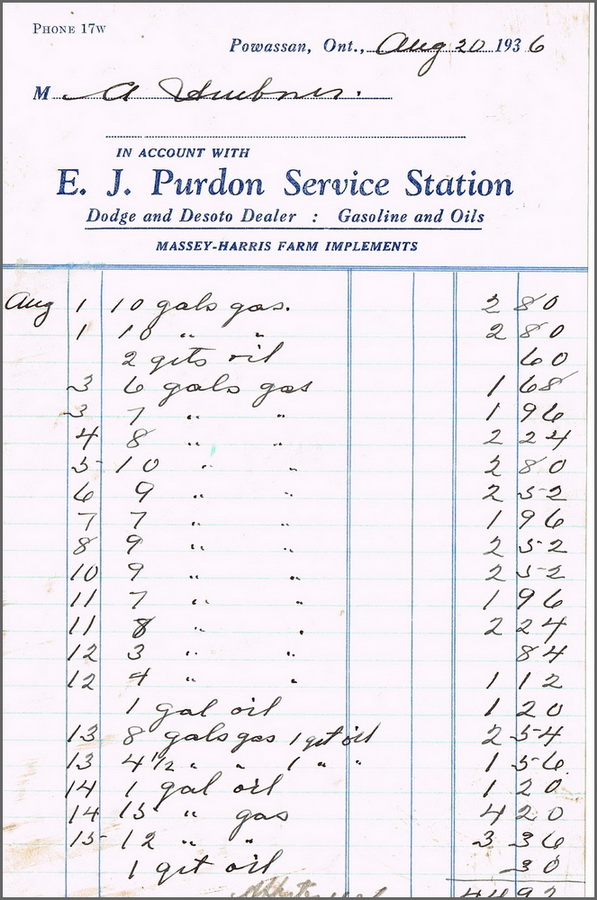 PHONE 17W
Powassan, Ont., Aug 20 1936
M A Huebner.
IN ACCOUNT WITH
E. J. Purdon Service Station
Dodge and Desoto Dealer : Gasoline and Oils
MASSEY-HARRIS FARM IMPLEMENTS
Aug 1 10 gals gas. 2 80
1 10 " " 2 80
2 qts oil 60
3 6 gals gas 1 68
3 7 " " 1 96
4 8 " " 2 24
5 10 " " 2 80
6 9 " " 2 52
7 7 " " 1 96
8 9 " " 2 52
10 9 " " 2 52
11 7 " " 1 96
11 8 " " 2 24
12 3 " " 84
12 4 " " 1 12
1 gal oil 1 20
13 8 gals gas 1 qt oil 2 54
13 4 1/2 " " 1 " " 1 56
14 1 gal oil 1 20
14 15 " gas 4 20
15 12 " " 3 36
1 qt oil 30
44 92